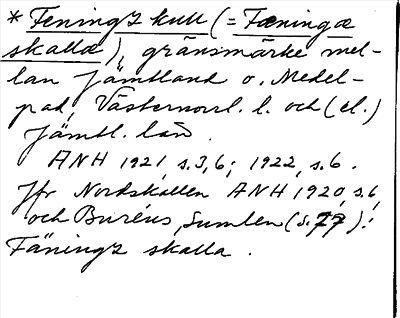 * Feningz kull (= Fæningæ
skalla), gränsmärke mel-
lan Jämtland o. Medel-
pad, Västernorrl. l. och (el.)
Jämtl. län.
ANH 1921, s. 3, 6; 1922, s. 6.
Jfr Nordskallen ANH 1920, s. 6,
och Buréus, Sumlen (s. 77):
Fäningz skalla.